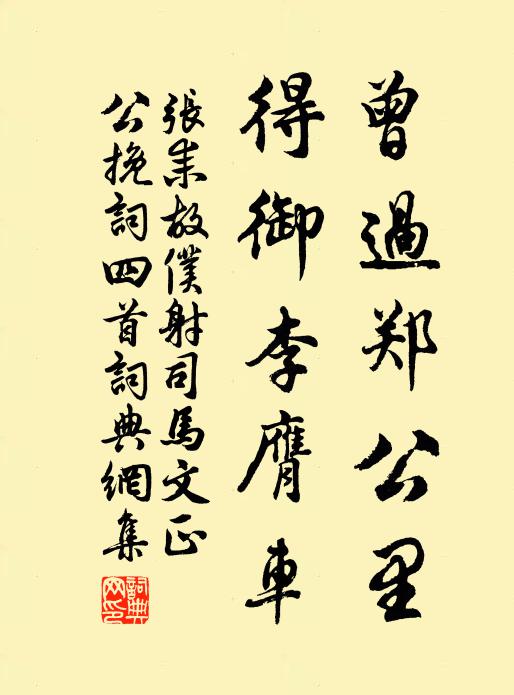 曾過郑公里
得御李膺車
張耒故僕射司馬文正
公挽詞四首詞典網集
詞典网印